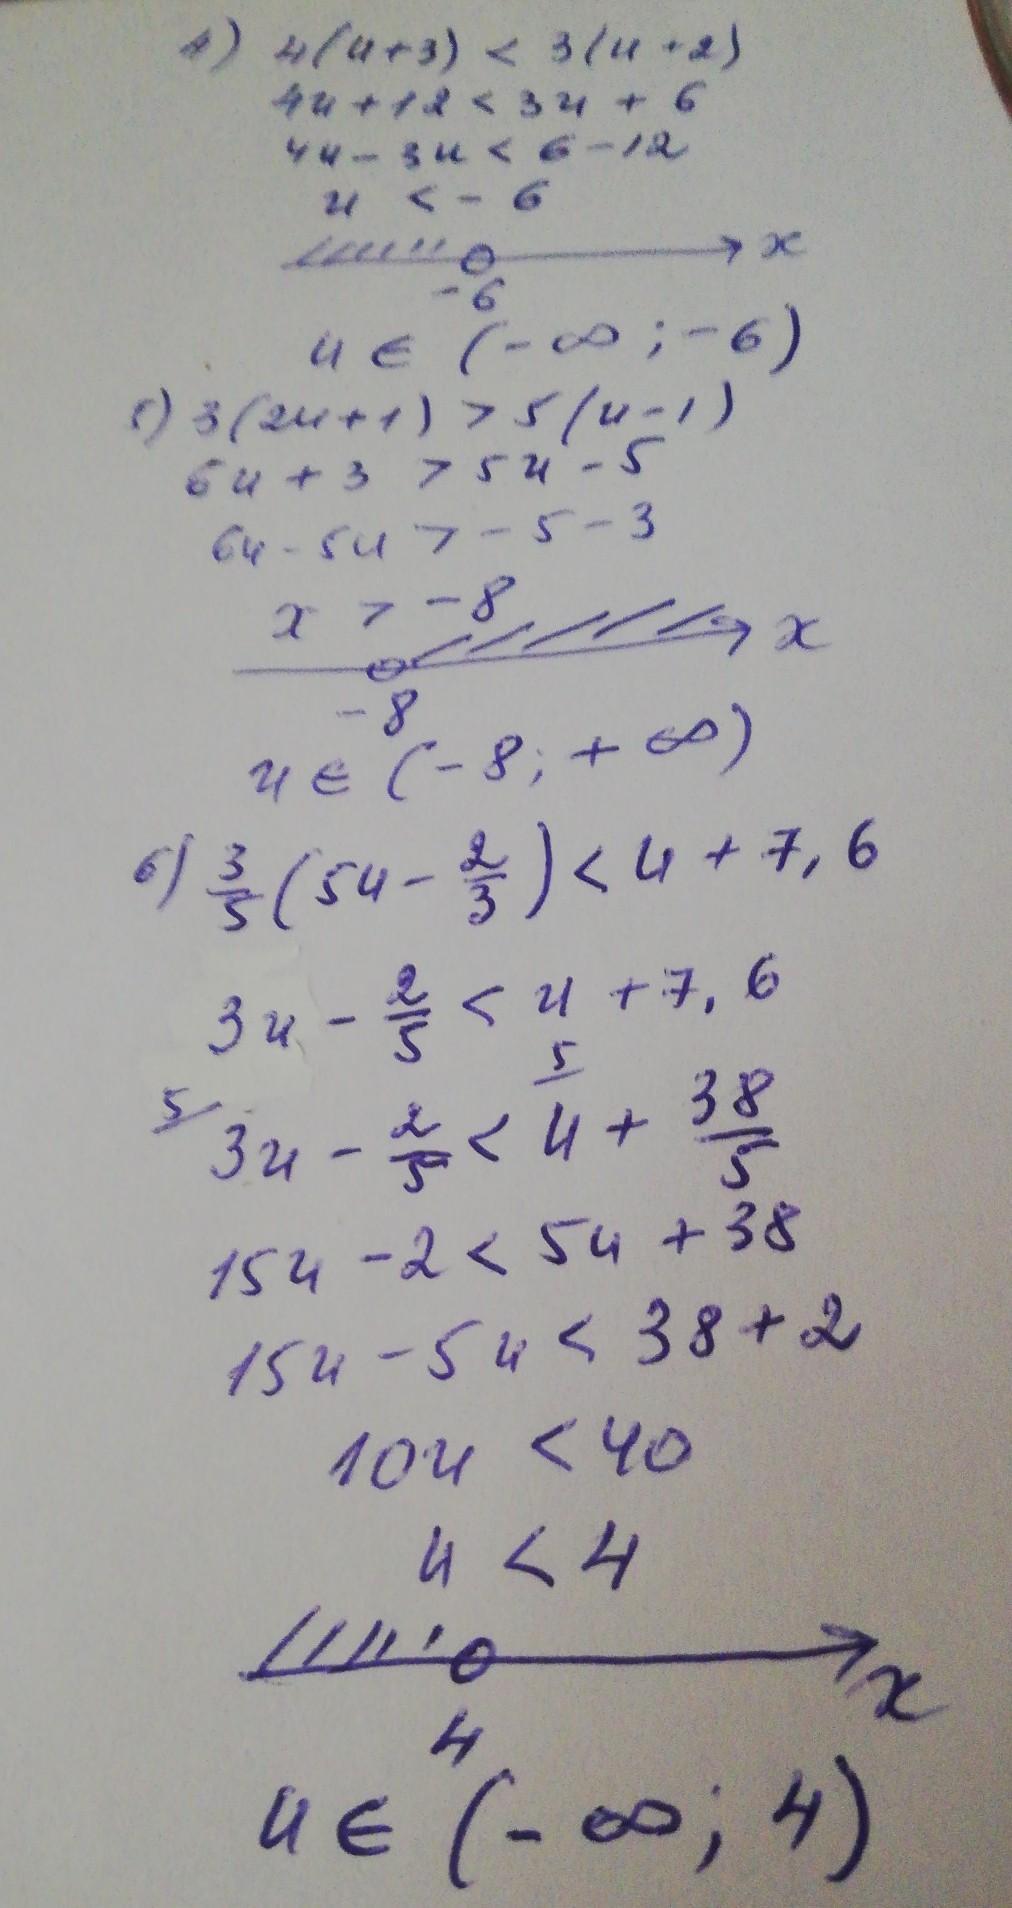 4) 4(u+3) < 3(u+2)
4u+12 < 3u + 6
4u - 3u < 6 - 12
u < - 6
x
-6
u ∈ (-∞; -6)
5) 3(2u+1) > 5(u-1)
6u + 3 > 5u - 5
6u - 5u > - 5 - 3
x > -8
x
-8
u ∈ (-8; +∞)
6) 3/5 (5u - 2/3) < u + 7,6
3u - 2/5 < u + 7,6
5/ 3u - 2/5 < 5/ u + 38/5
15u - 2 < 5u + 38
15u - 5u < 38 + 2
10u < 40
u < 4
x
4
u ∈ (-∞; 4)